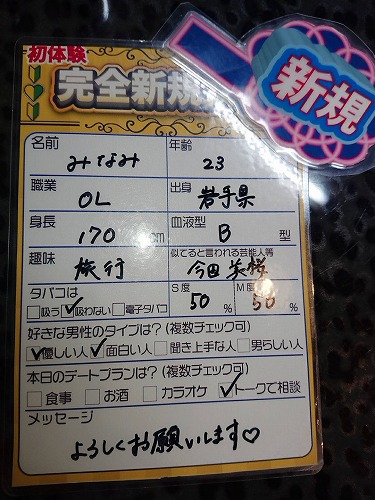 初体験
完全新規
新規
名前 みなみ 年齢 23
職業 OL 出身 岩手県
身長 170 cm 血液型 B 型
趣味 旅行 似てると言われる芸能人等 今田美桜
タバコは S度 M度
□吸う ☑吸わない □電子タバコ 50 % 50 %
好きな男性のタイプは?(複数チェック可)
☑優しい人 ☑面白い人 □聞き上手な人 □男らしい人
本日のデートプランは?(複数チェック可)
□食事 □お酒 □カラオケ ☑トークで相談
メッセージ
よろしくお願いします♡